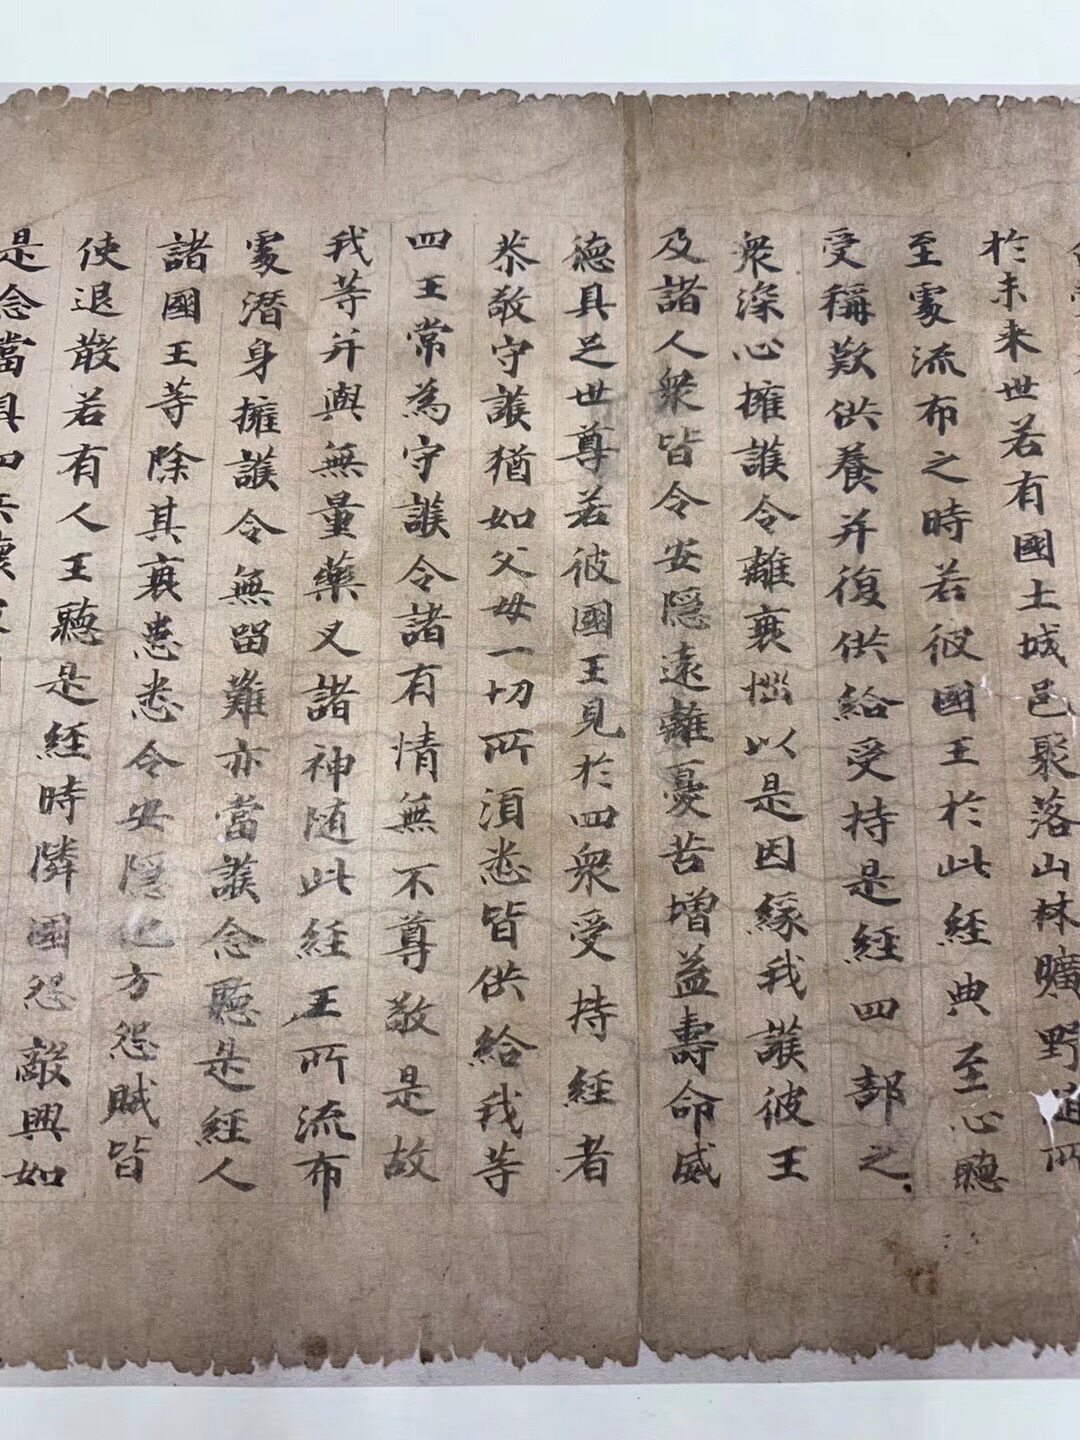 於未来世若有國土城邑聚落山林曠野随所
至處流布之時若彼國王於此經典至心聽
受稱歎供養并復供給受持是經四部之
衆深心擁護令離衰惱以是因緣我護彼王
及諸人衆皆令安隱遠離憂苦增益壽命威
德具足世尊若彼國王見於四衆受持經者
恭敬守護猶如父母一切所須悉皆供給我等
四王常為守護令諸有情無不尊敬是故
我等并與無量藥叉諸神随此經王所流布
處潛身擁護令無留難亦當護念聽是經人
諸國王等除其衰患悉令安隱他方怨賊皆
使退散若有人王聽是經時隣國怨敵興如
是念當具四兵壞